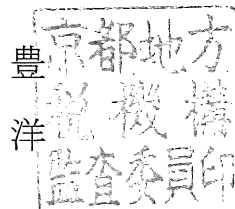 豊洋
京都地方
税機構
監査委員印